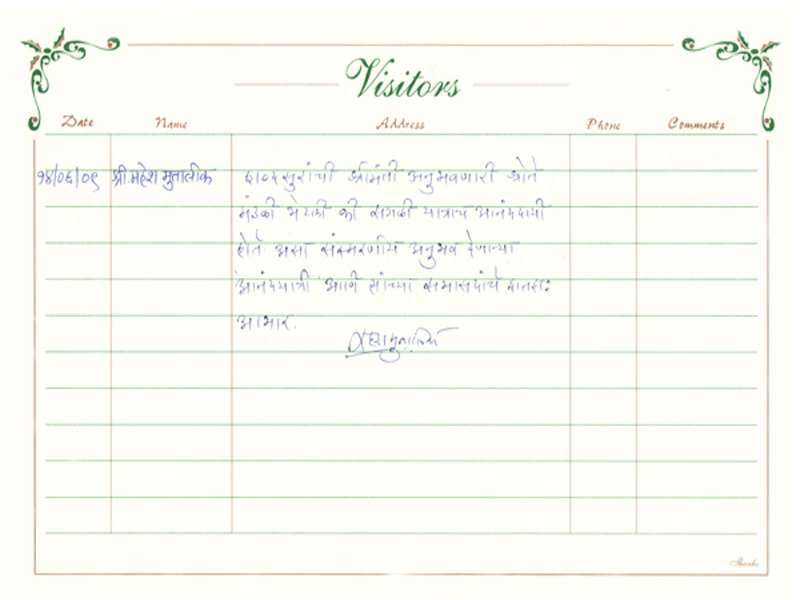 Visitors
Date Name Address Phone Comments
१४/०६/०९ श्री. महेश मुतालीक शब्दसुरांची श्रीमंती अनुभवणारी श्रोते
मंडळी भेटली की सगळी यात्राच आनंददायी
होते. असा संस्मरणीय अनुभव देणाऱ्या
'आनंदयात्री' आणि त्यांच्या सभासदांचे शतशः
आभार.
Thanks